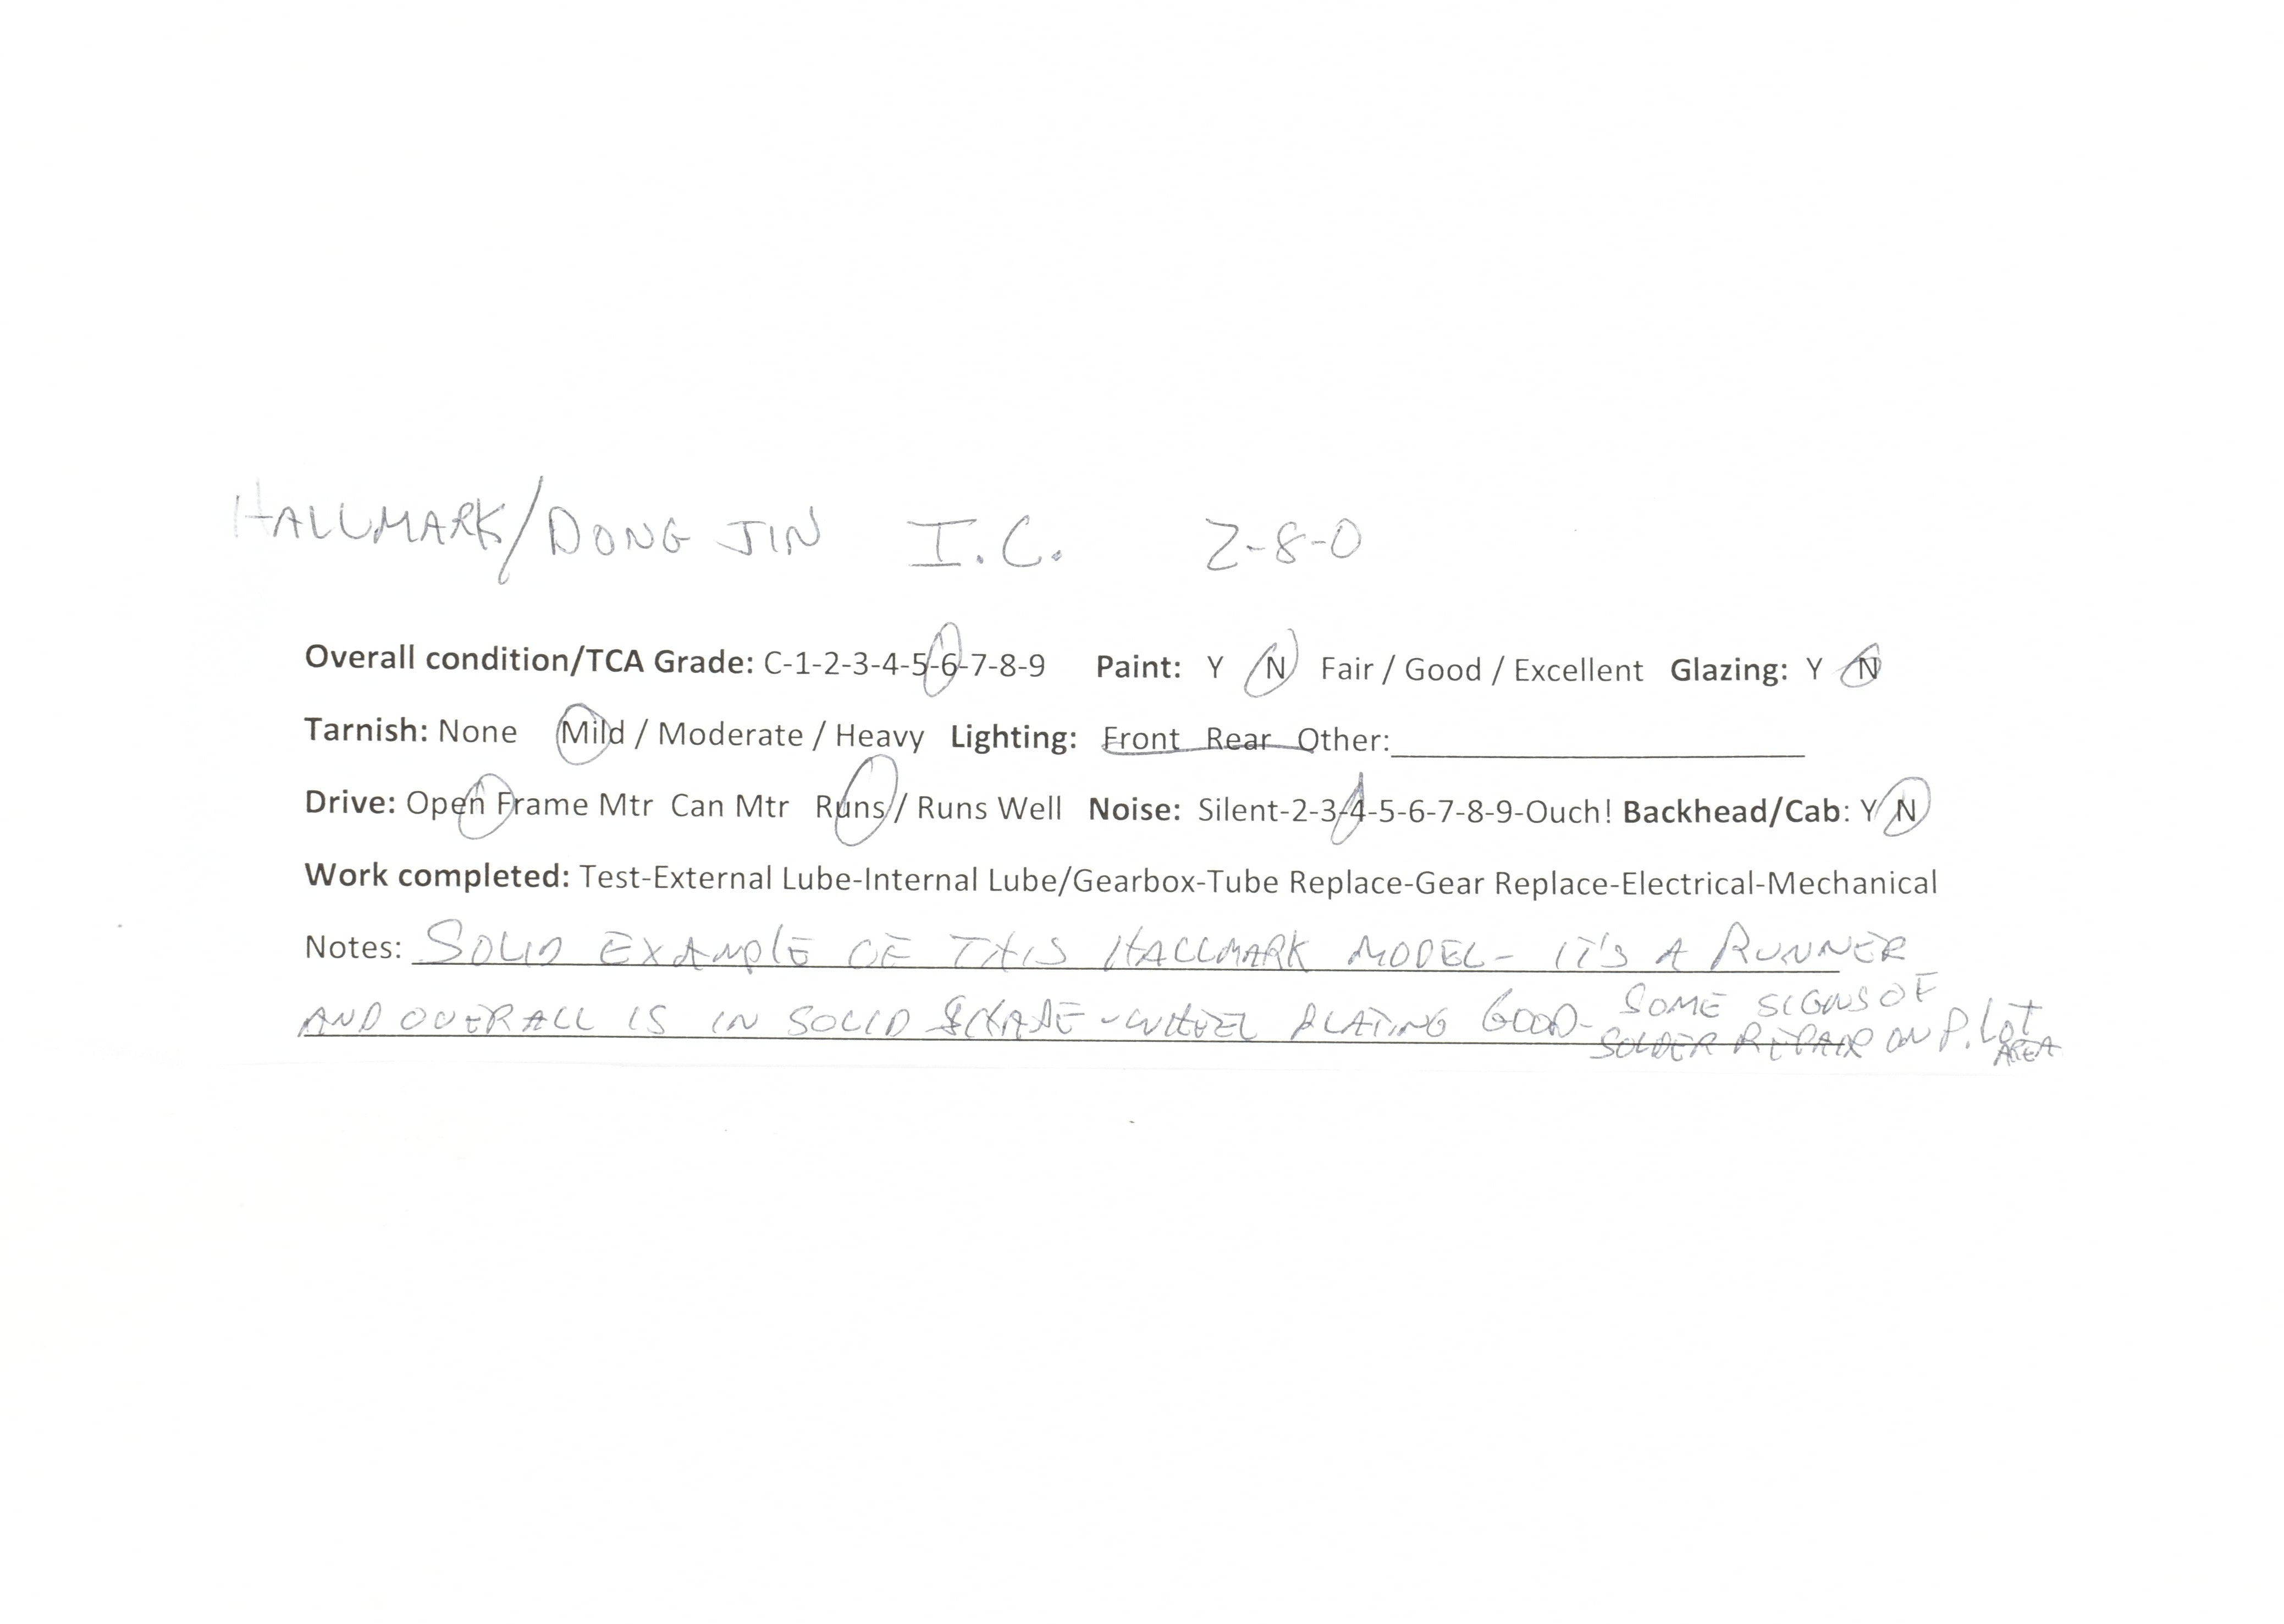 HALLMARK/DONG JIN I.C. 2-8-0
Overall condition/TCA Grade: C-1-2-3-4-5-6-7-8-9 Paint: Y N Fair / Good / Excellent Glazing: Y N
Tarnish: None Mild / Moderate / Heavy Lighting: Front Rear Other:
Drive: Open Frame Mtr Can Mtr Runs / Runs Well Noise: Silent-2-3-4-5-6-7-8-9-Ouch! Backhead/Cab: Y N
Work completed: Test-External Lube-Internal Lube/Gearbox-Tube Replace-Gear Replace-Electrical-Mechanical
Notes: SOLID EXAMPLE OF THIS HALLMARK MODEL - IT'S A RUNNER
AND OVERALL IS IN SOLID SHAPE - WHEEL PLATING GOOD - SOME SIGNS OF
SOLDER REPAIR ON PILOT
AREA